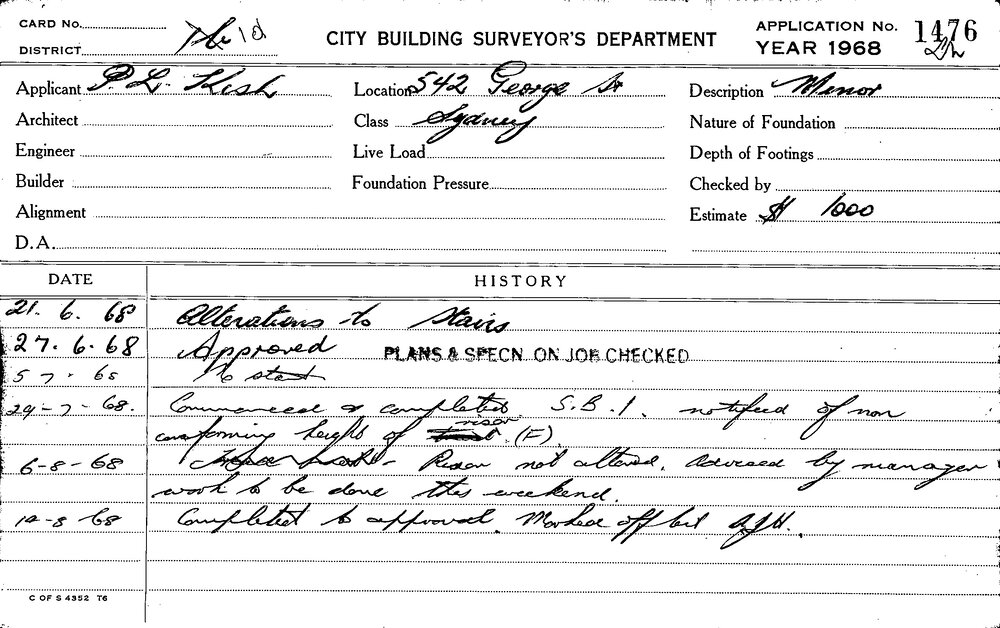 CARD No.
DISTRICT
CITY BUILDING SURVEYOR'S DEPARTMENT
APPLICATION No. 1476
YEAR 1968
Applicant P. L. Kish
Location 542 George St
Description Minor
Architect
Class Sydney
Nature of Foundation
Engineer
Live Load
Depth of Footings
Builder
Foundation Pressure
Checked by
Alignment
Estimate $ 1000
D.A.
DATE HISTORY
21. 6. 68 Alterations to Stairs
27. 6. 68 Approved PLANS & SPECN. ON JOB CHECKED
5 7 - 68 No start
29-7-68. Commenced & completed. S.B.I. notified of non
conforming height of riser (F).
6-8-68 Riser not altered. Advised by manager
work to be done this weekend.
8 68 Completed to approval. Marked off list AJH.
C OF S 4352 T6